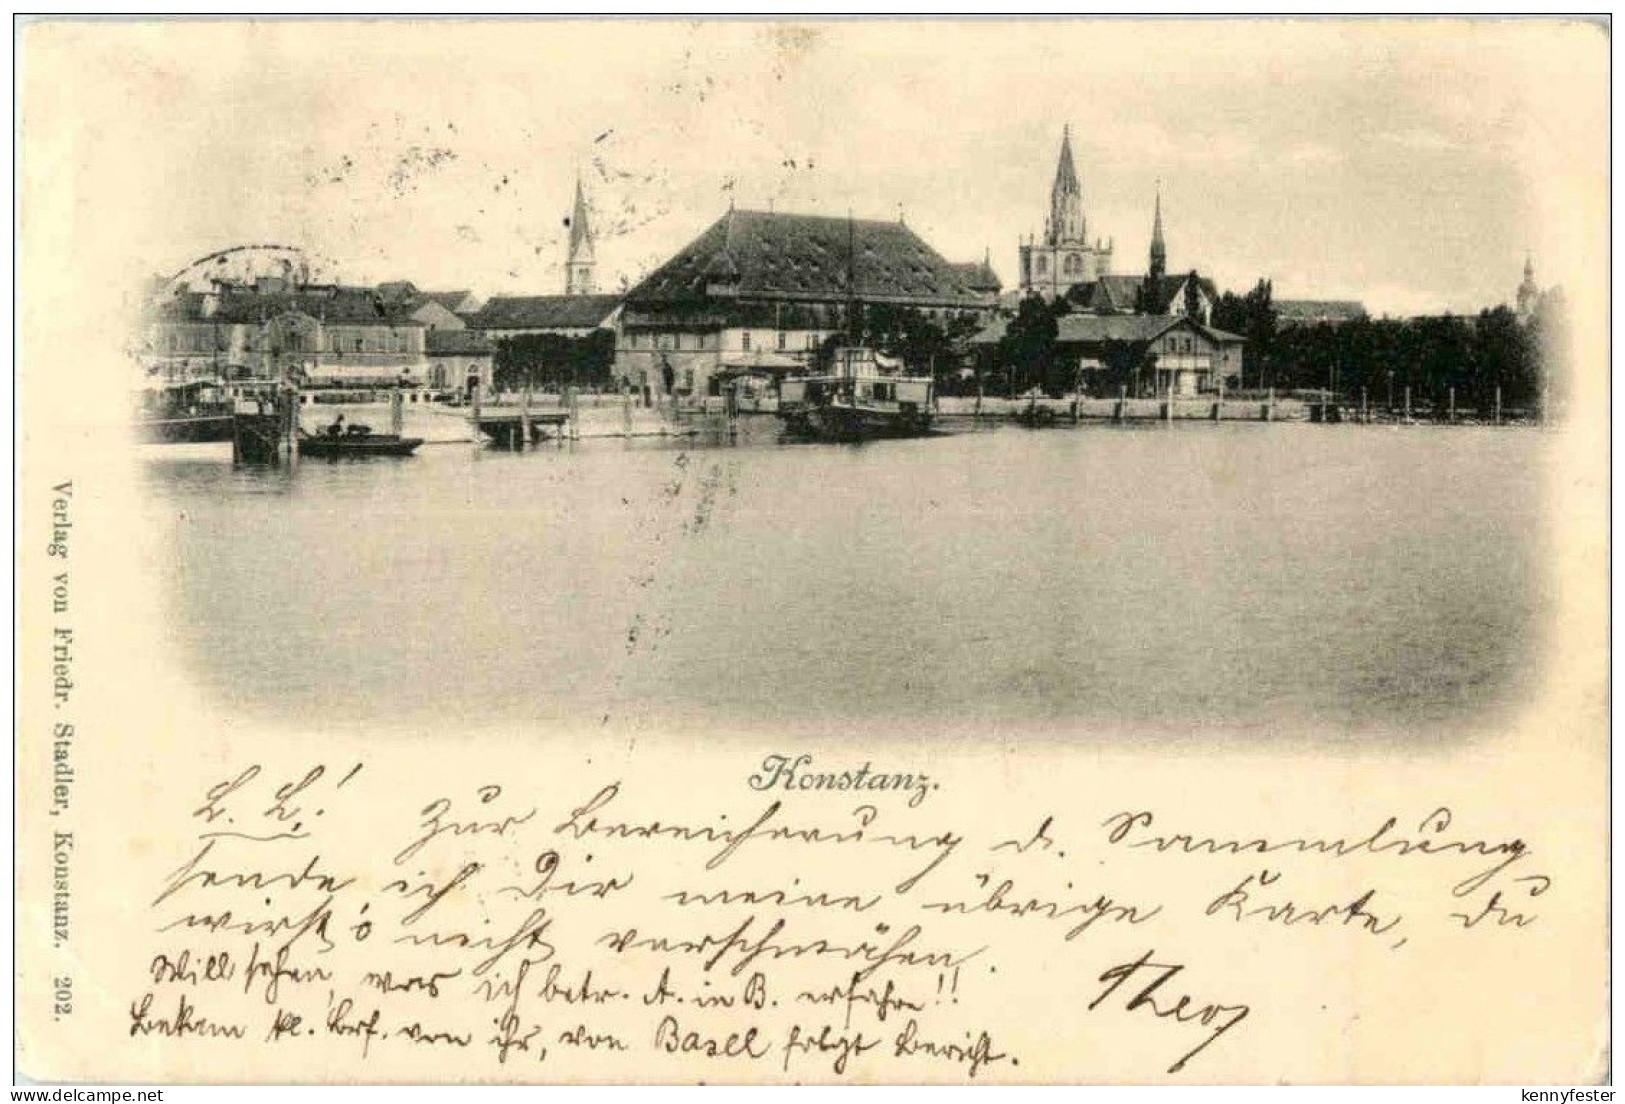 Verlag von Friedr. Stadler, Konstanz. 202.
Konstanz.
L. L.! Zur Bereicherung d. Sammlung
sende ich Dir meine übrige Karte, du
wirst's nicht verschmähen.
Will sehen, was ich betr. A. in B. erfahre!!
Bekam kl. Brf. von ihr, von Basel folgt Bericht.
Theo
delcampe.net
kennyfester